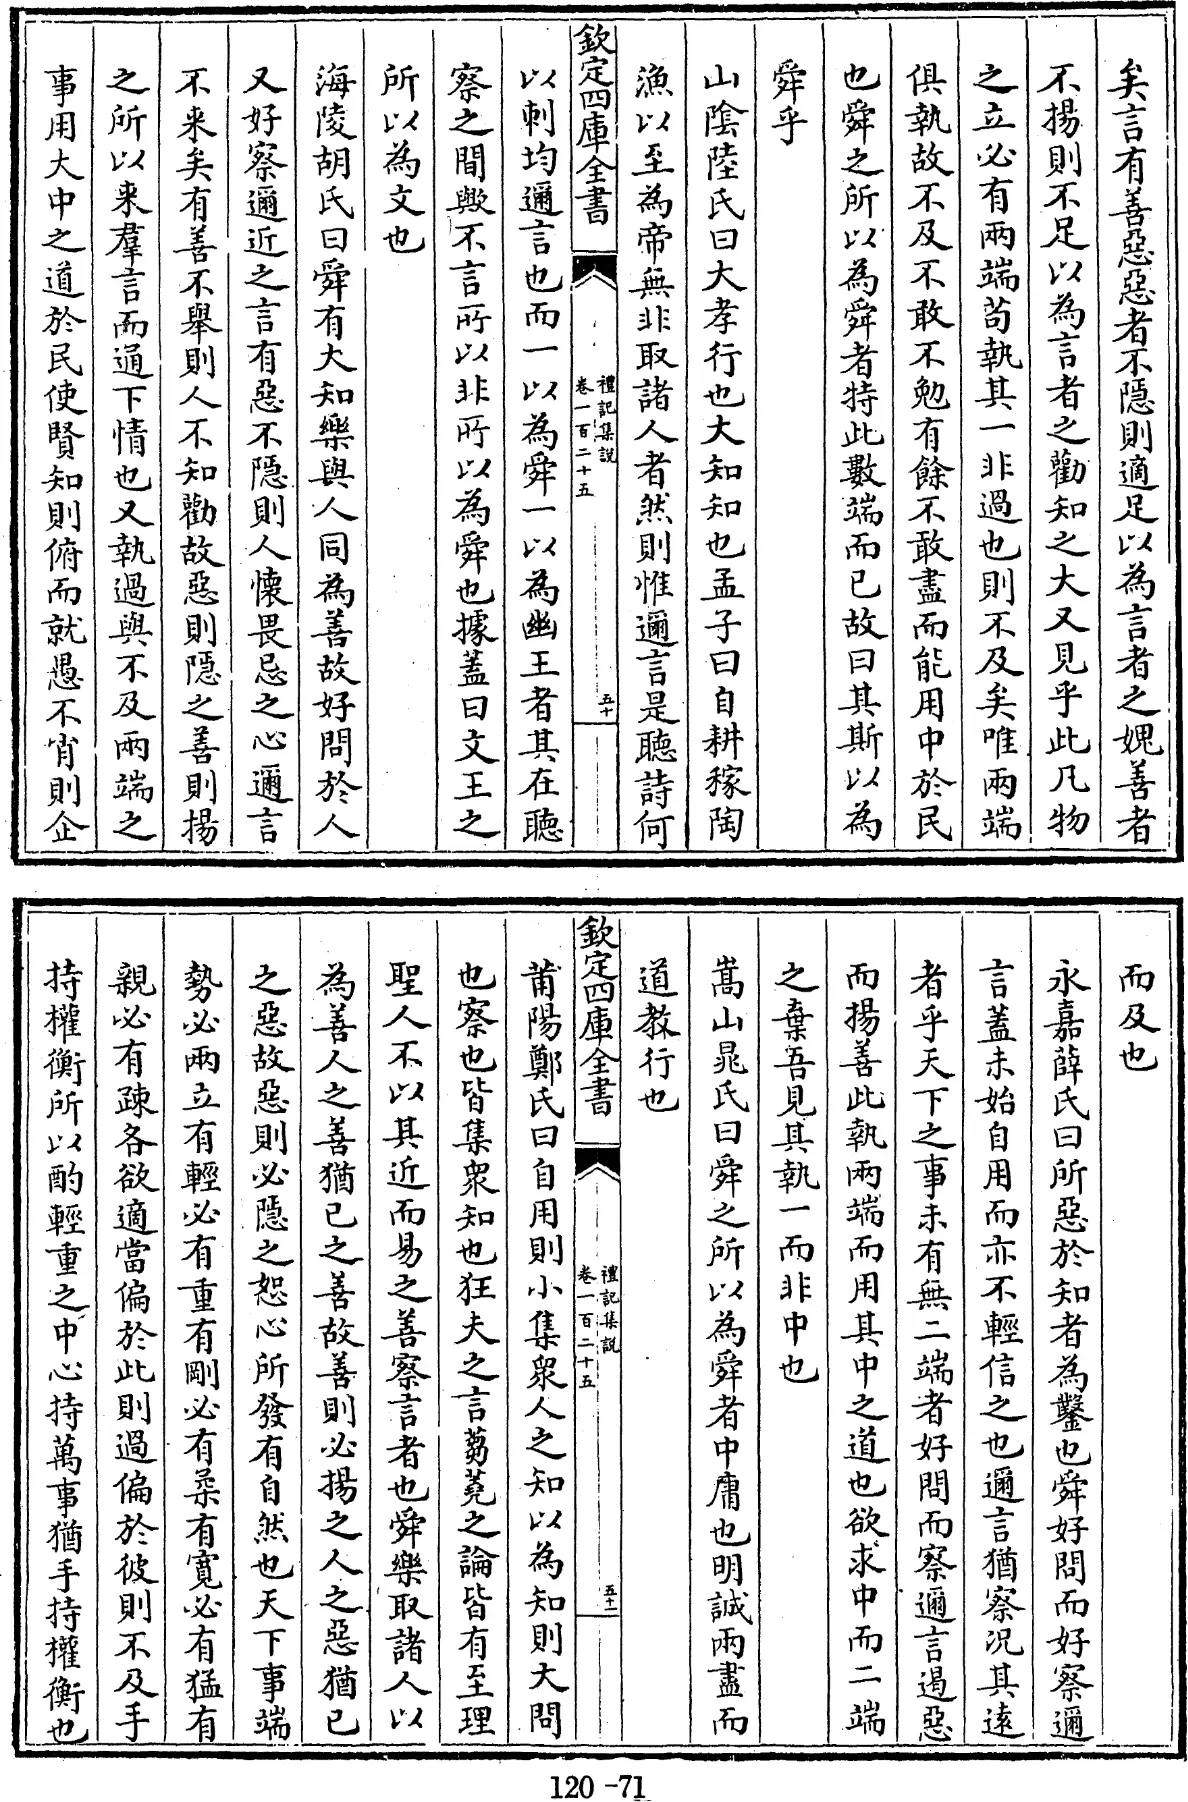 矣言有善惡惡者不隱則適足以為言者之媿善者
不揚則不足以為言者之勸知之大又見乎此凡物
之立必有兩端茍執其一非過也則不及矣唯兩端
俱執故不及不敢不勉有餘不敢盡而能用中於民
也舜之所以為舜者特此數端而已故曰其斯以為
舜乎
山陰陸氏曰大孝行也大知知也孟子曰自耕稼陶
漁以至為帝無非取諸人者然則惟邇言是聽詩何
欽定四庫全書
禮記集說
卷一百二十五
五十
以刺均邇言也而一以為舜一以為幽王者其在聽
察之間歟不言所以非所以為舜也據蓋曰文王之
所以為文也
海陵胡氏曰舜有大知樂與人同為善故好問於人
又好察邇近之言有惡不隱則人懷畏忌之心邇言
不来矣有善不舉則人不知勸故惡則隱之善則揚
之所以来羣言而通下情也又執過與不及兩端之
事用大中之道於民使賢知則俯而就愚不肖則企
而及也
永嘉薛氏曰所惡於知者為鑿也舜好問而好察邇
言蓋未始自用而亦不輕信之也邇言猶察况其遠
者乎天下之事未有無二端者好問而察邇言遏惡
而揚善此執兩端而用其中之道也欲求中而二端
之棄吾見其執一而非中也
嵩山晁氏曰舜之所以為舜者中庸也明誠兩盡而
道教行也
欽定四庫全書
禮記集說
卷一百二十五
五十一
莆陽鄭氏曰自用則小集衆人之知以為知則大問
也察也皆集衆知也狂夫之言蒭蕘之論皆有至理
聖人不以其近而易之善察言者也舜樂取諸人以
為善人之善猶已之善故善則必揚之人之惡猶已
之惡故惡則必隱之恕心所發有自然也天下事端
勢必兩立有輕必有重有剛必有柔有寬必有猛有
親必有疎各欲適當偏於此則過偏於彼則不及手
持權衡所以酌輕重之中心持萬事猶手持權衡也
120-71